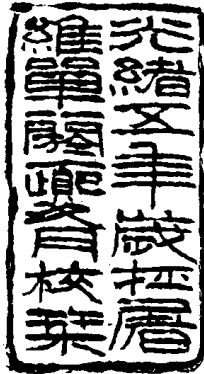 光緒五年歲在屠
維單閼校栞